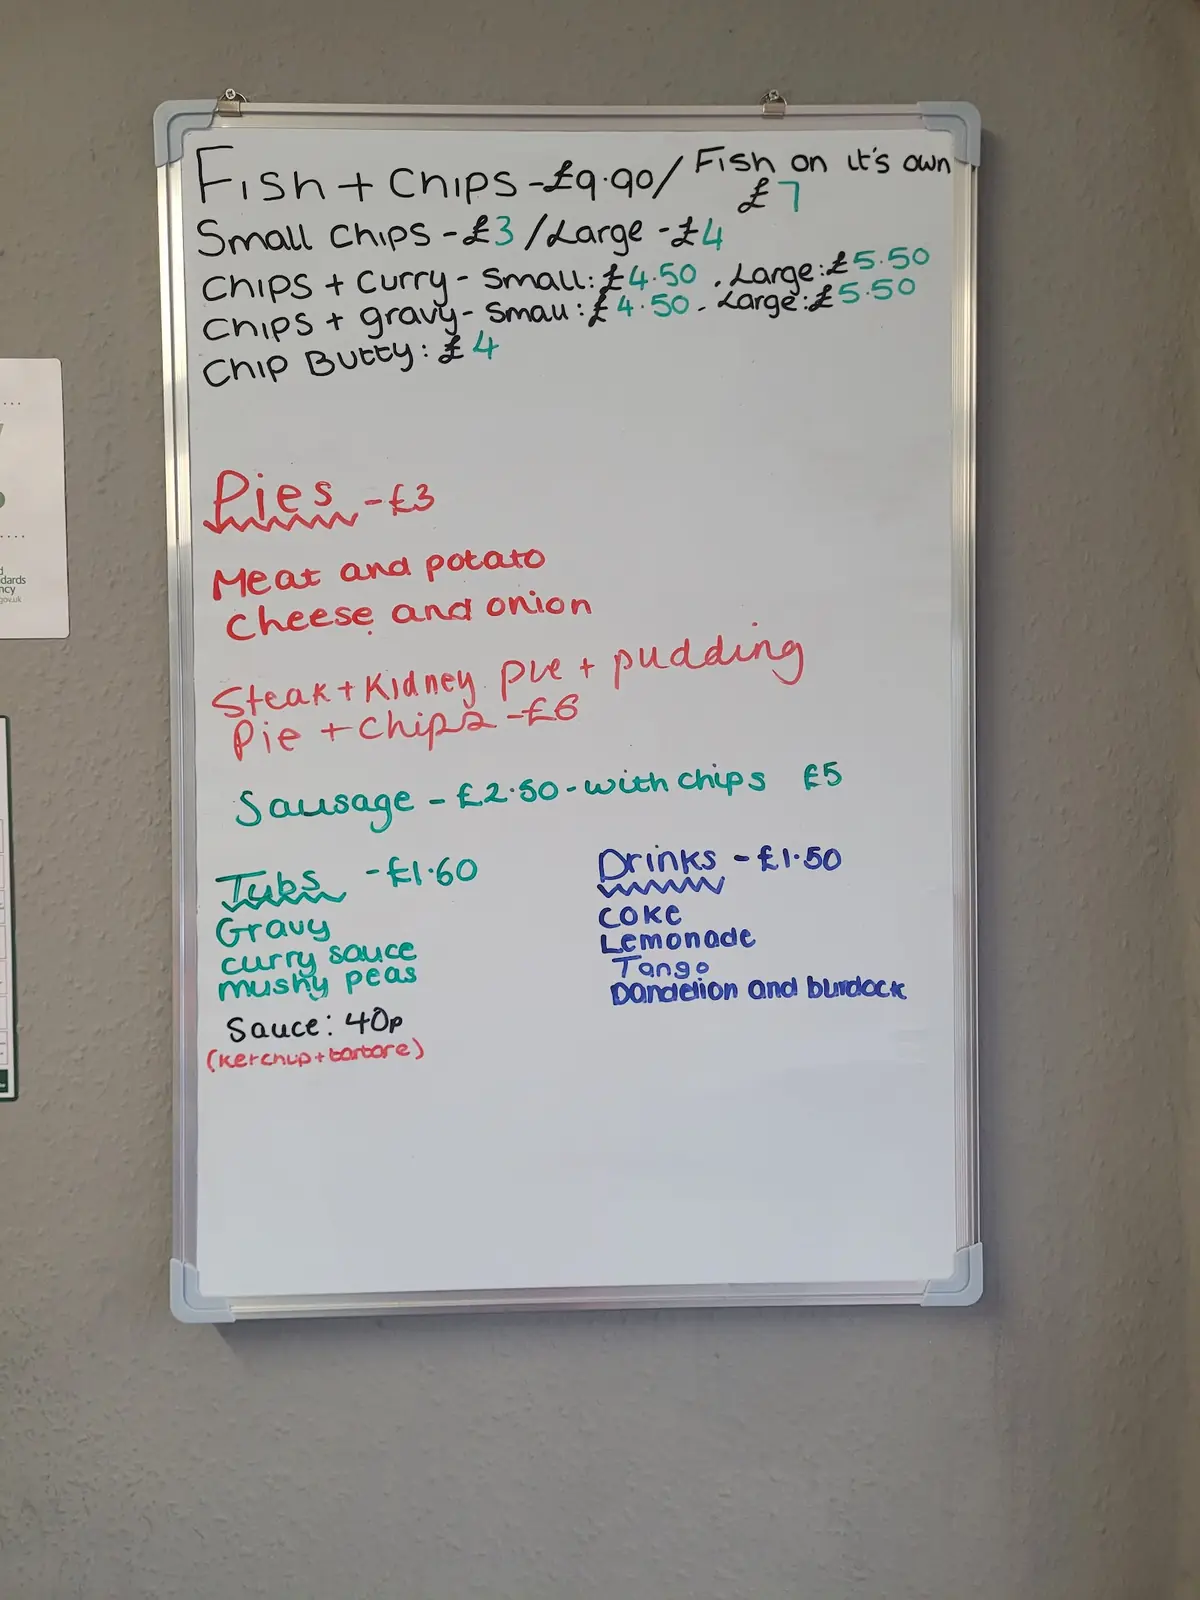 Fish + Chips - £9.90 / Fish on it's own £7
Small Chips - £3 / Large - £4
Chips + Curry - Small: £4.50 . Large: £5.50
Chips + gravy - Small: £4.50 - Large: £5.50
Chip Butty: £4
Pies - £3
Meat and potato
Cheese and onion
Steak + Kidney pie + pudding
Pie + Chips - £6
Sausage - £2.50 - with chips £5
Tubs - £1.60
Gravy
curry sauce
mushy peas
Sauce: 40p
(Ketchup + tartare)
Drinks - £1.50
Coke
Lemonade
Tango
Dandelion and burdock
dards
ncy
gov.uk